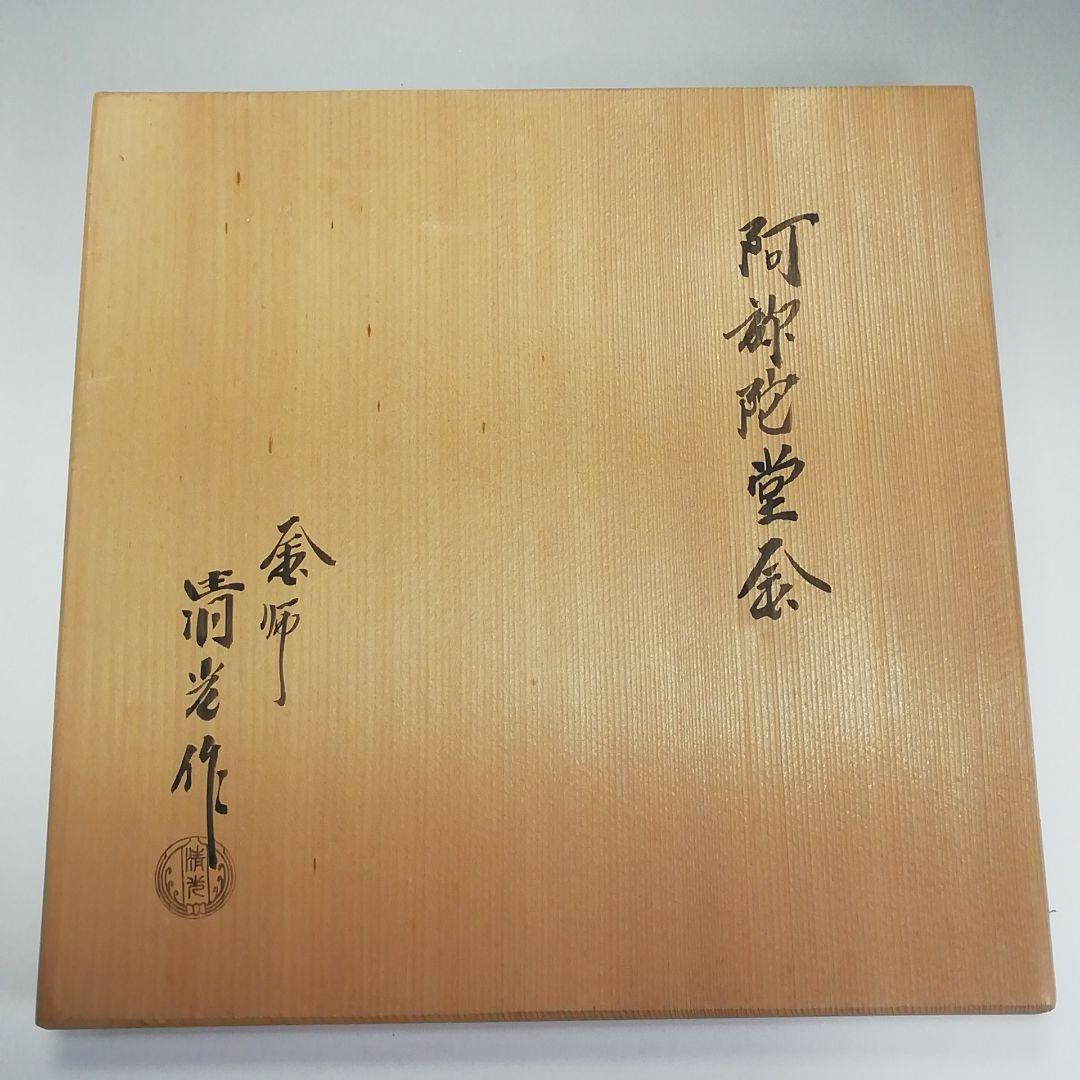 阿弥陀堂釜
釜师
清光作
清光